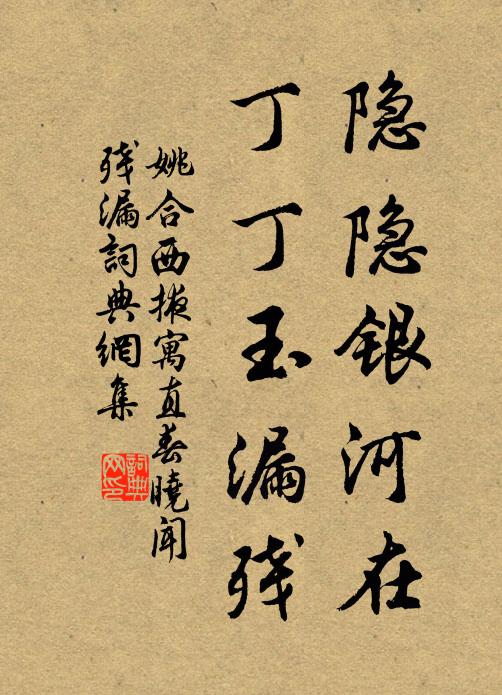 隐隐银河在
丁丁玉漏残
姚合西掖寓直春曉闻
残漏詞典網集
詞典
网印